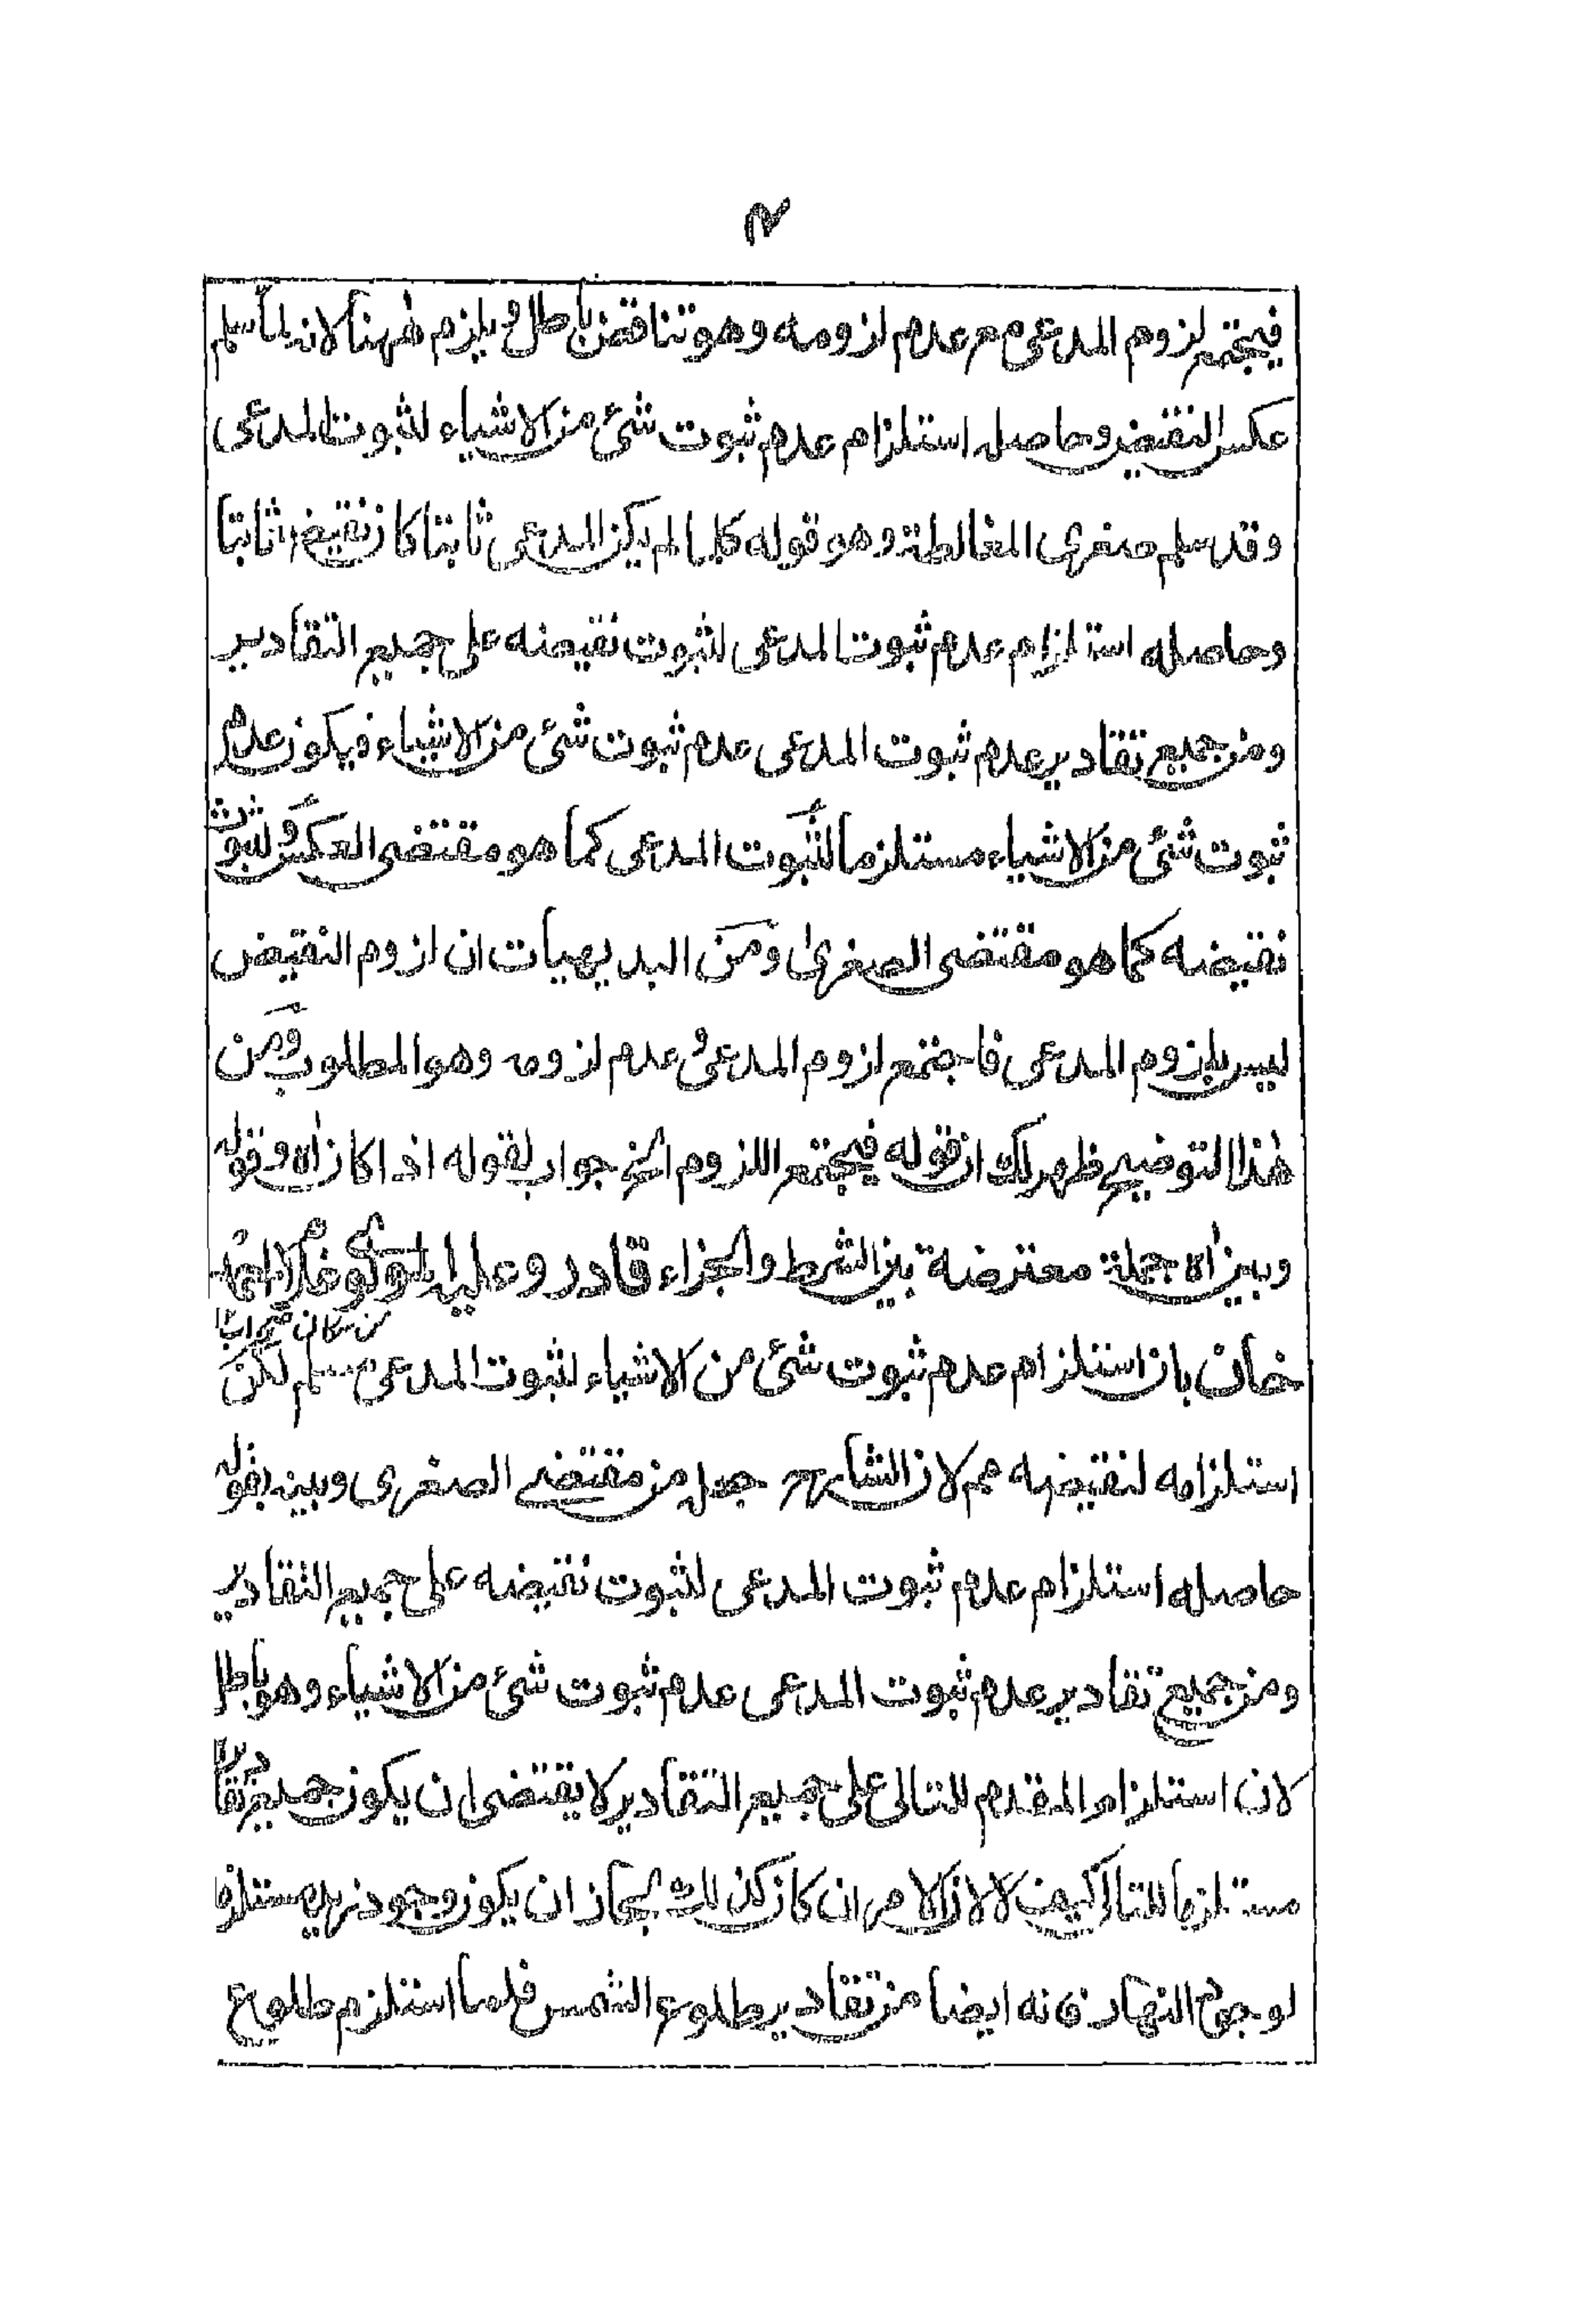 ۴
فيجتمع لزوم المدعى مع عدم لزومه وهو تناقض باطل ويلزم ههنا لانه لما سلم
عكس النقيض وحاصله استلزام عدم ثبوت شئ من الاشياء لثبوت المدعى
وقد سلم صغرى المغالطة وهو قوله كلما لم يكن المدعى ثابتا كان نقيضه ثابتا
وحاصله استلزام عدم ثبوت المدعى لثبوت نقيضه على جميع التقادير
ومن جميع تقادير عدم ثبوت المدعى عدم ثبوت شئ من الاشياء فيكون عدم
ثبوت شئ من الاشياء مستلزما لثبوت المدعى كما هو مقتضى العكس ولثبوت
نقيضه كما هو مقتضى الصغرى ومن البديهيات ان لزوم النقيض
ليس بلزوم المدعى فاجتمع لزوم المدعى وعدم لزومه وهو المطلوب ومن
هذا التوضيح ظهر لك ان قوله فيجتمع اللزوم الخ جواب لقوله اذا كان اه وقوله
وبين اه جملة معترضة بين الشرط والجزاء قادر وعليه المولوى غلام احمد
من سكان
خان بان استلزام عدم ثبوت شئ من الاشياء لثبوت المدعى مسلم لكن
استلزامه لنقيضه مم لان الشارح جعله من مقتضى الصغرى وبينه بقوله
حاصله استلزام عدم ثبوت المدعى لثبوت نقيضه على جميع التقادير
ومن جميع تقادير عدم ثبوت المدعى عدم ثبوت شئ من الاشياء وهو باطل
لان استلزام المقدم للتالى على جميع التقادير لا يقتضى ان يكون جميع تقاديره
مستلزما للتالى كيف لا لان الامر ان كان كذلك لجاز ان يكون وجود زيد مستلزما
لوجود النهار فانه ايضا من تقادير طلوع الشمس فلما استلزم طلوع